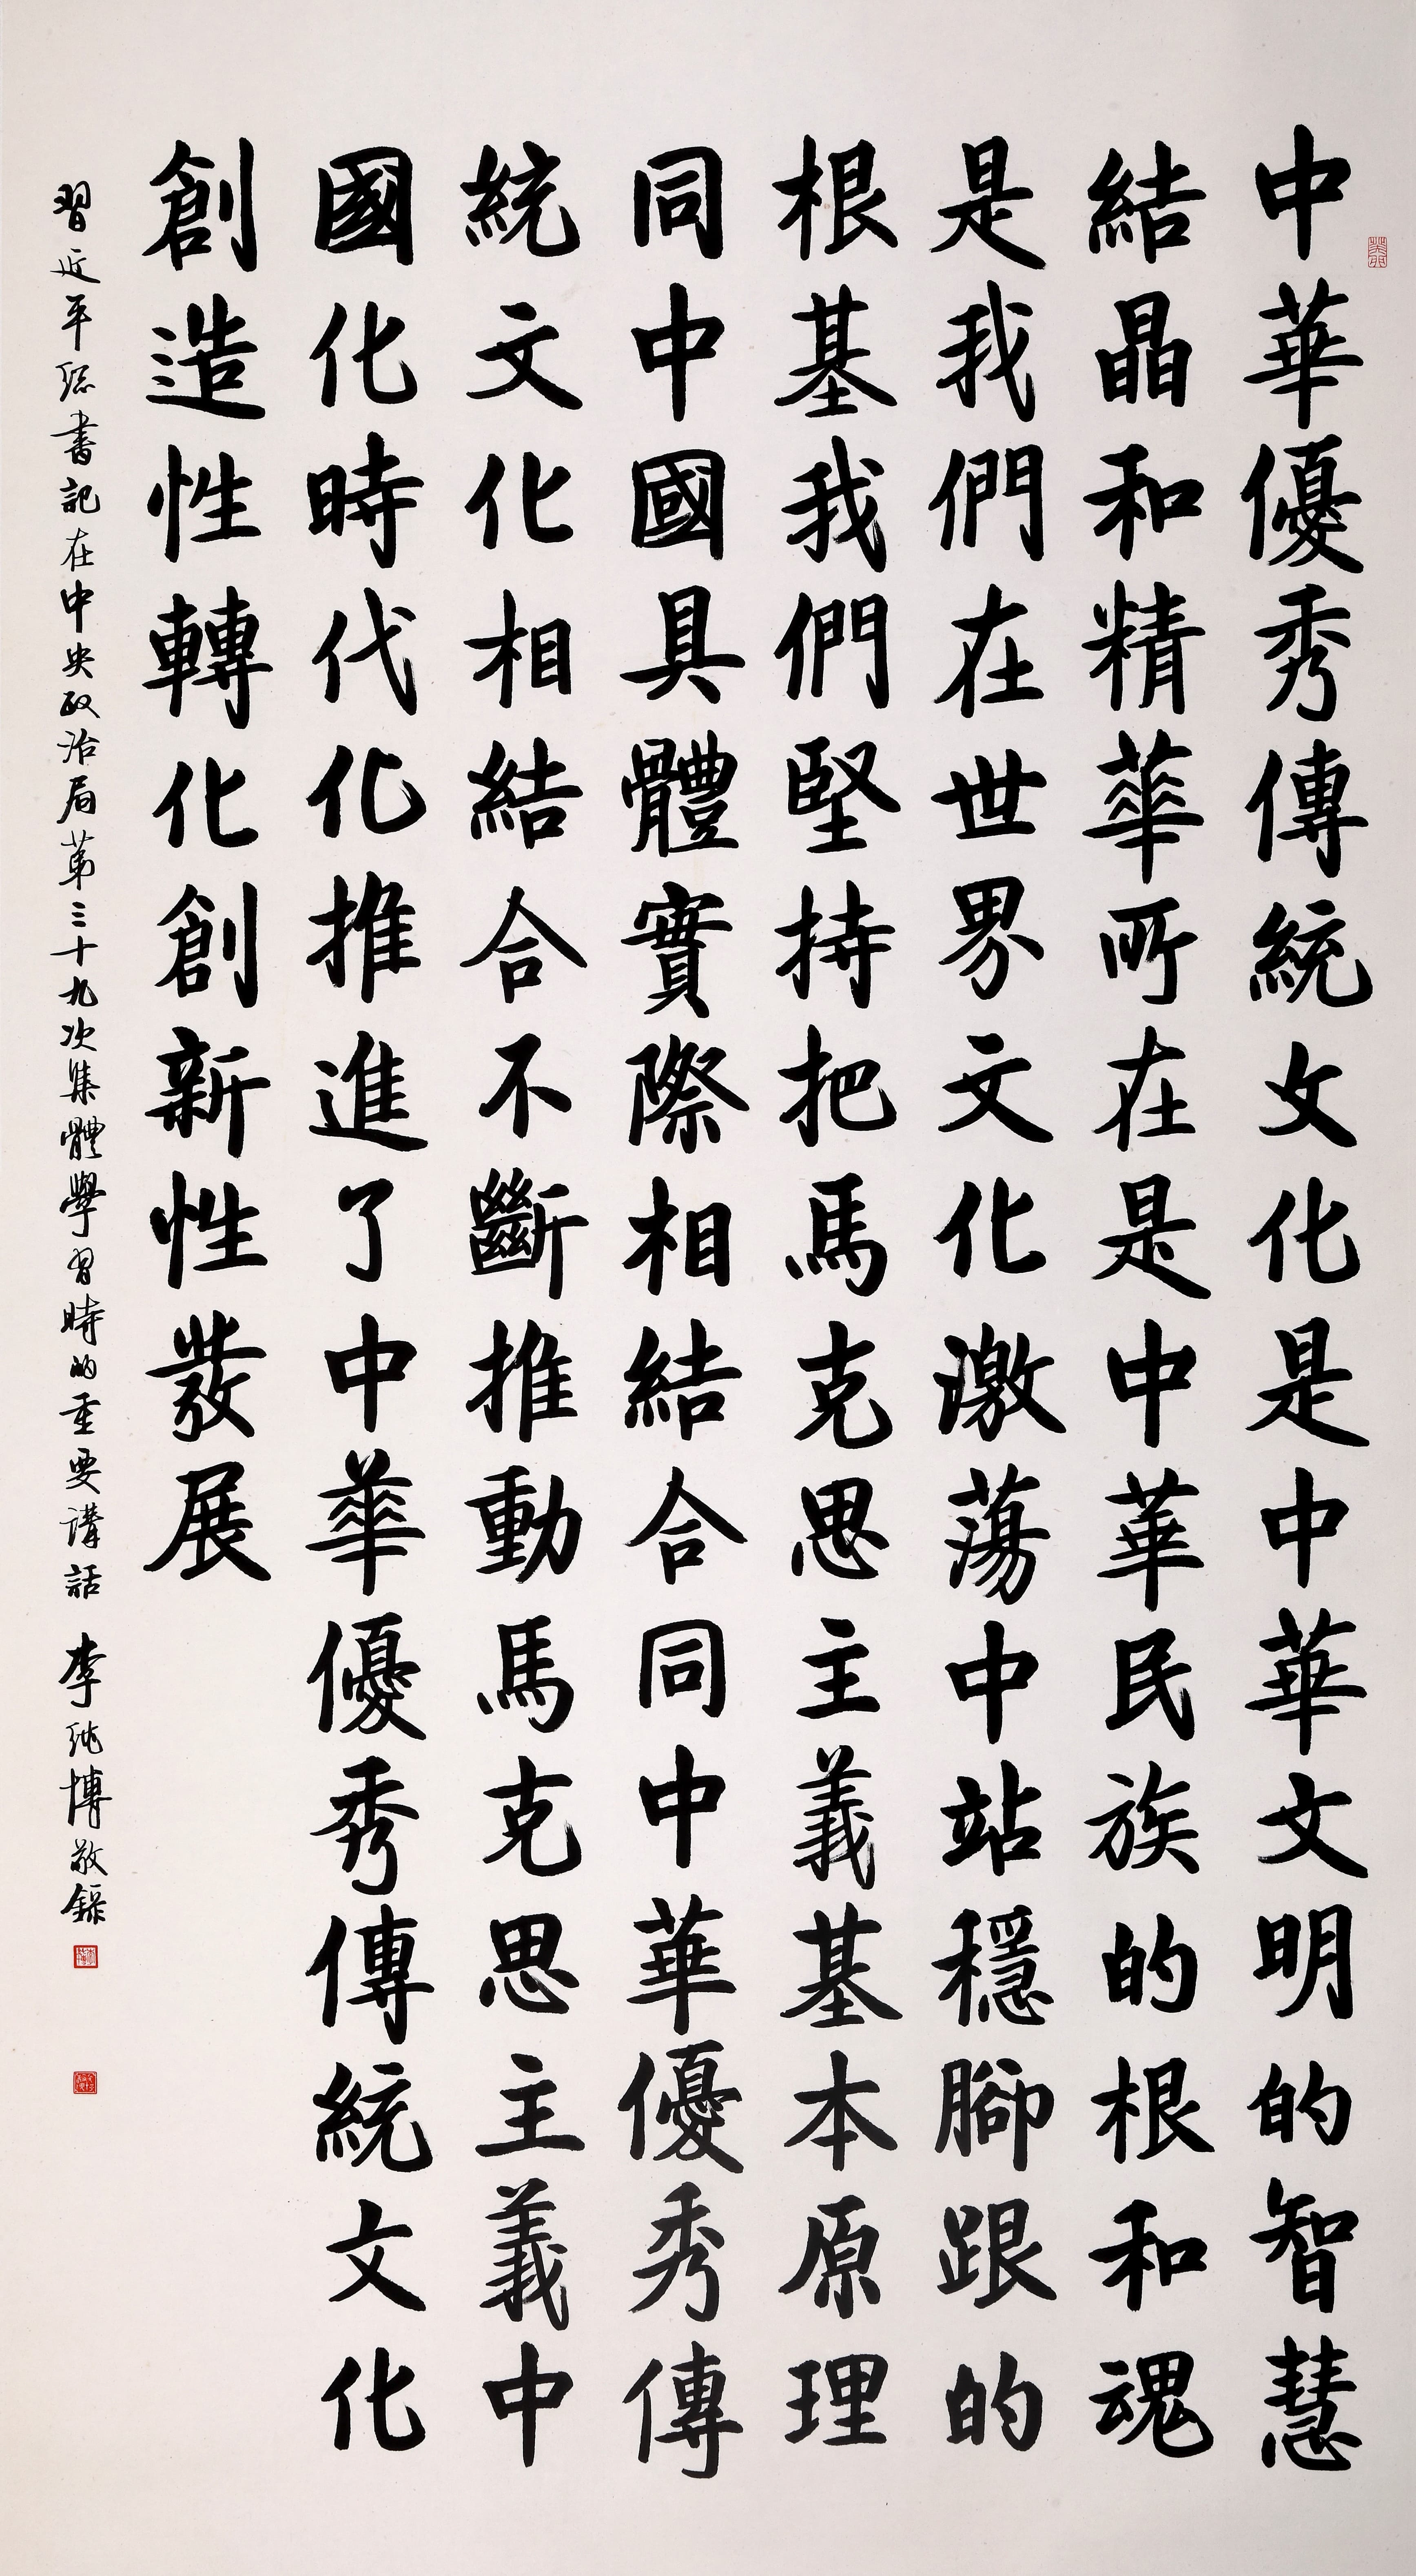 中華優秀傳統文化是中華文明的智慧
結晶和精華所在是中華民族的根和魂
是我們在世界文化激蕩中站穩腳跟的
根基我們堅持把馬克思主義基本原理
同中國具體實際相結合同中華優秀傳
統文化相結合不斷推動馬克思主義中
國化時代化推進了中華優秀傳統文化
創造性轉化創新性發展
習近平總書記在中央政治局第三十九次集體學習時的重要講話 李純博敬錄